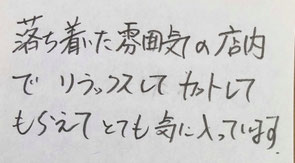 落ち着いた雰囲気の店内
で リラックスして カットして
もらえて とても 気に入っています.